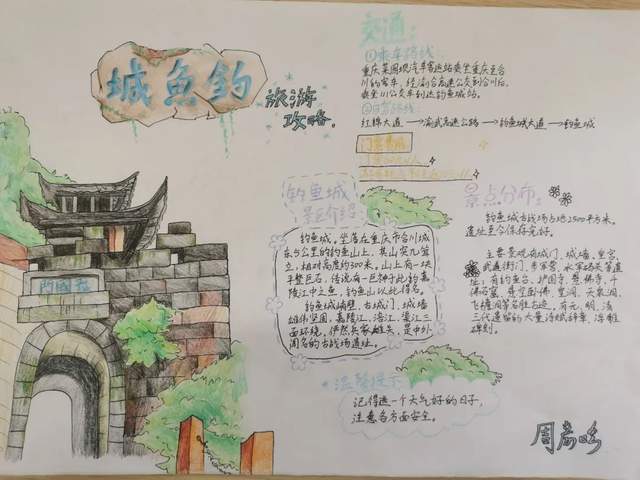 城魚釣
旅游
攻略
交通：
①乘车路线
重庆菜园坝汽车客运站乘坐重庆至合
川的客车，经渝合高速公交到合川后，
乘坐川公交车到达钓鱼城站。
②自驾路线
红锦大道→渝武高速公路→钓鱼城大道→钓鱼城
钓鱼城
景区介绍
钓鱼城，坐落在重庆市合川城
东5公里的钓鱼山上，其山突兀耸
立，相对高度约300米。山上有一块
平整巨石，传说有一巨神于此钓嘉
陵江中之鱼，钓鱼山以此得名。
钓鱼城峭壁，古城门、城墙
雄伟坚固，嘉陵江、涪江、渠江三
面环绕，俨然兵家雄关，是中外
闻名的古战场遗址。
景点分布：
钓鱼城古战场占地2500平方米。
遗址至今保存完好。
主要景观有城门、城墙、皇宫、
武道衙门、步军营、水军码头等遗
址；有钓鱼台、护国寺、悬佛寺、千
佛石窟、皇洞、天泉洞、
飞檐洞等名胜古迹，有元、明、清
三代遗留的大量诗赋辞章、浮雕
碑刻。
護國門
温馨提示
记得选一个天气好的日子，
注意各方面安全。